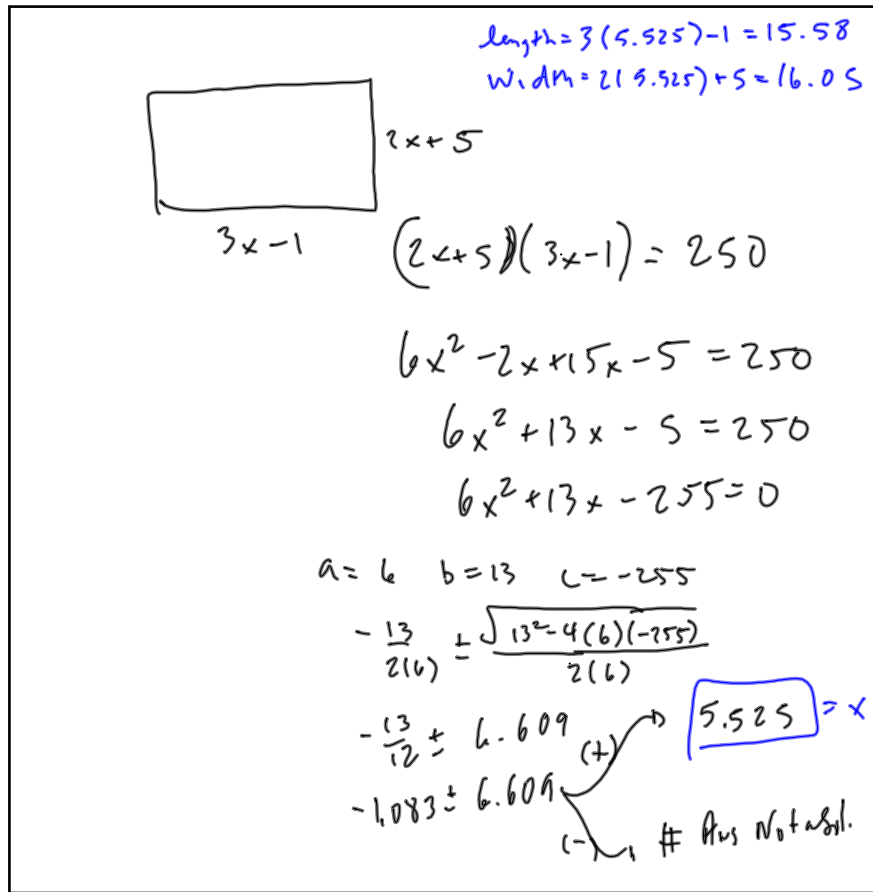 length = 3(5.525)-1 = 15.58
Width = 2(5.525)+5 = 16.05
2x+5
3x-1
(2x+5)(3x-1) = 250
6x² -2x+15x-5 = 250
6x² +13x - 5 = 250
6x² +13x -255 = 0
a = 6 b = 13 c = -255
- 13/2(6) ± √(13²-4(6)(-255))/2(6)
- 13/12 ± 6.609
(+) 5.525 = x
-1.083 ± 6.609
(-) # Ans Not a sol.